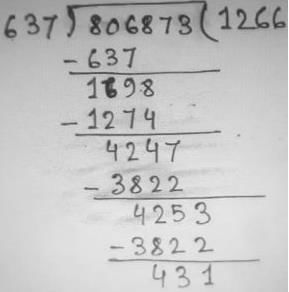 637)806873(1266
-637
1698
-1274
4247
-3822
4253
-3822
431